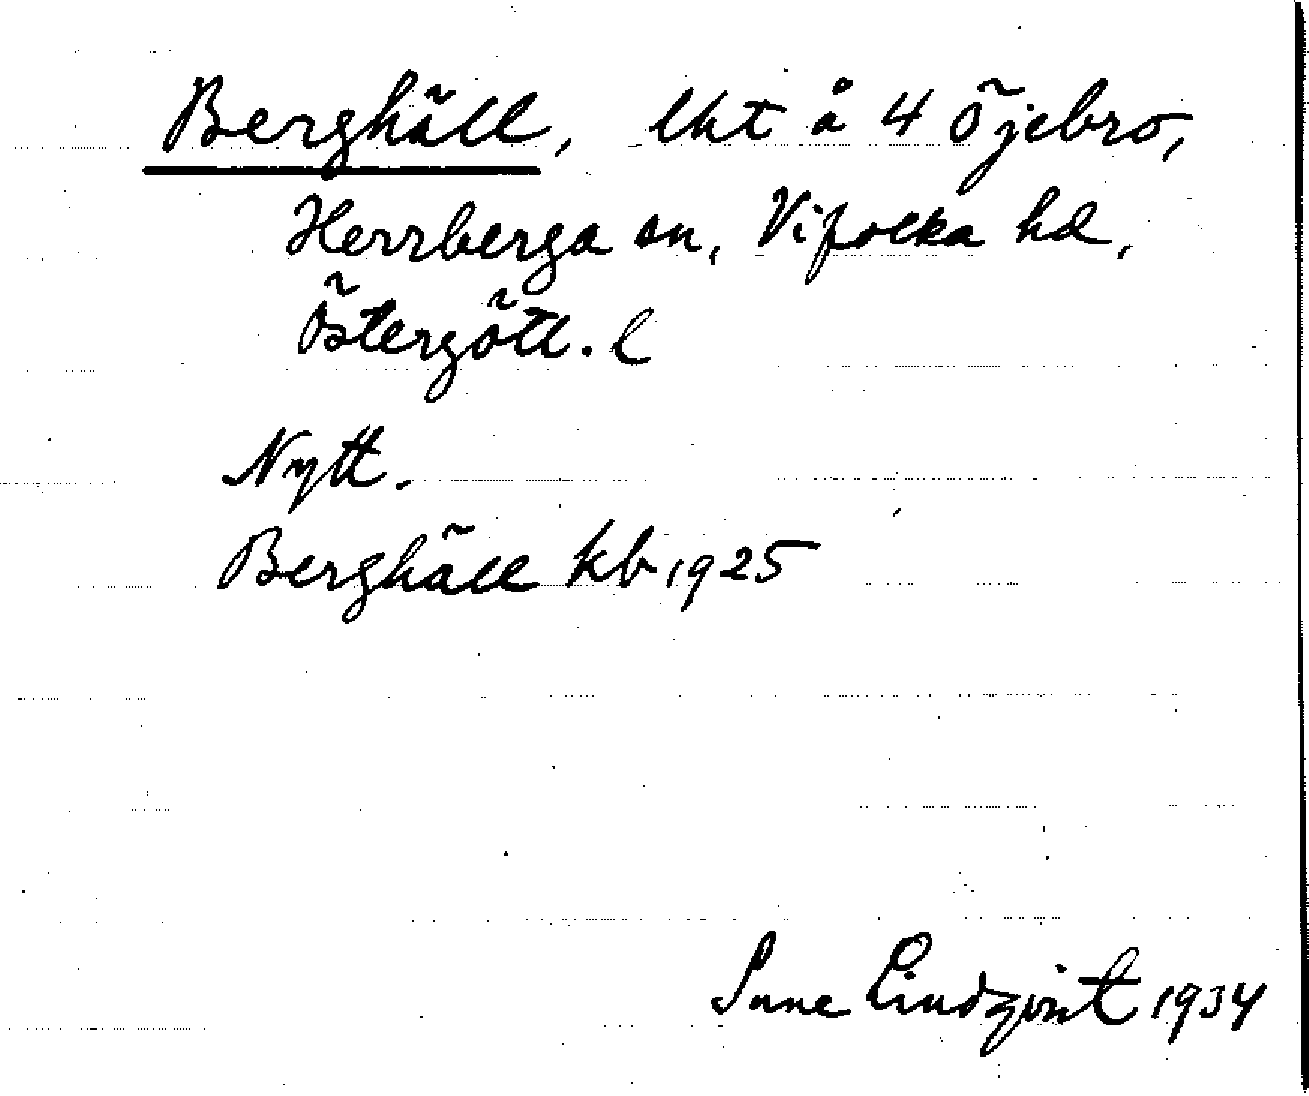 Berghäll, lht å 4 Öjebro,
Herrberga sn, Vifolka hd,
Östergötl. l
Nytt.
Berghäll kb 1925
Sune Lindqvist 1934